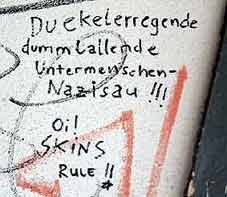 Du ekelerregende
dummlallende
Untermenschen-
Nazisau !!!
Oi!
SKINS
RULE !!